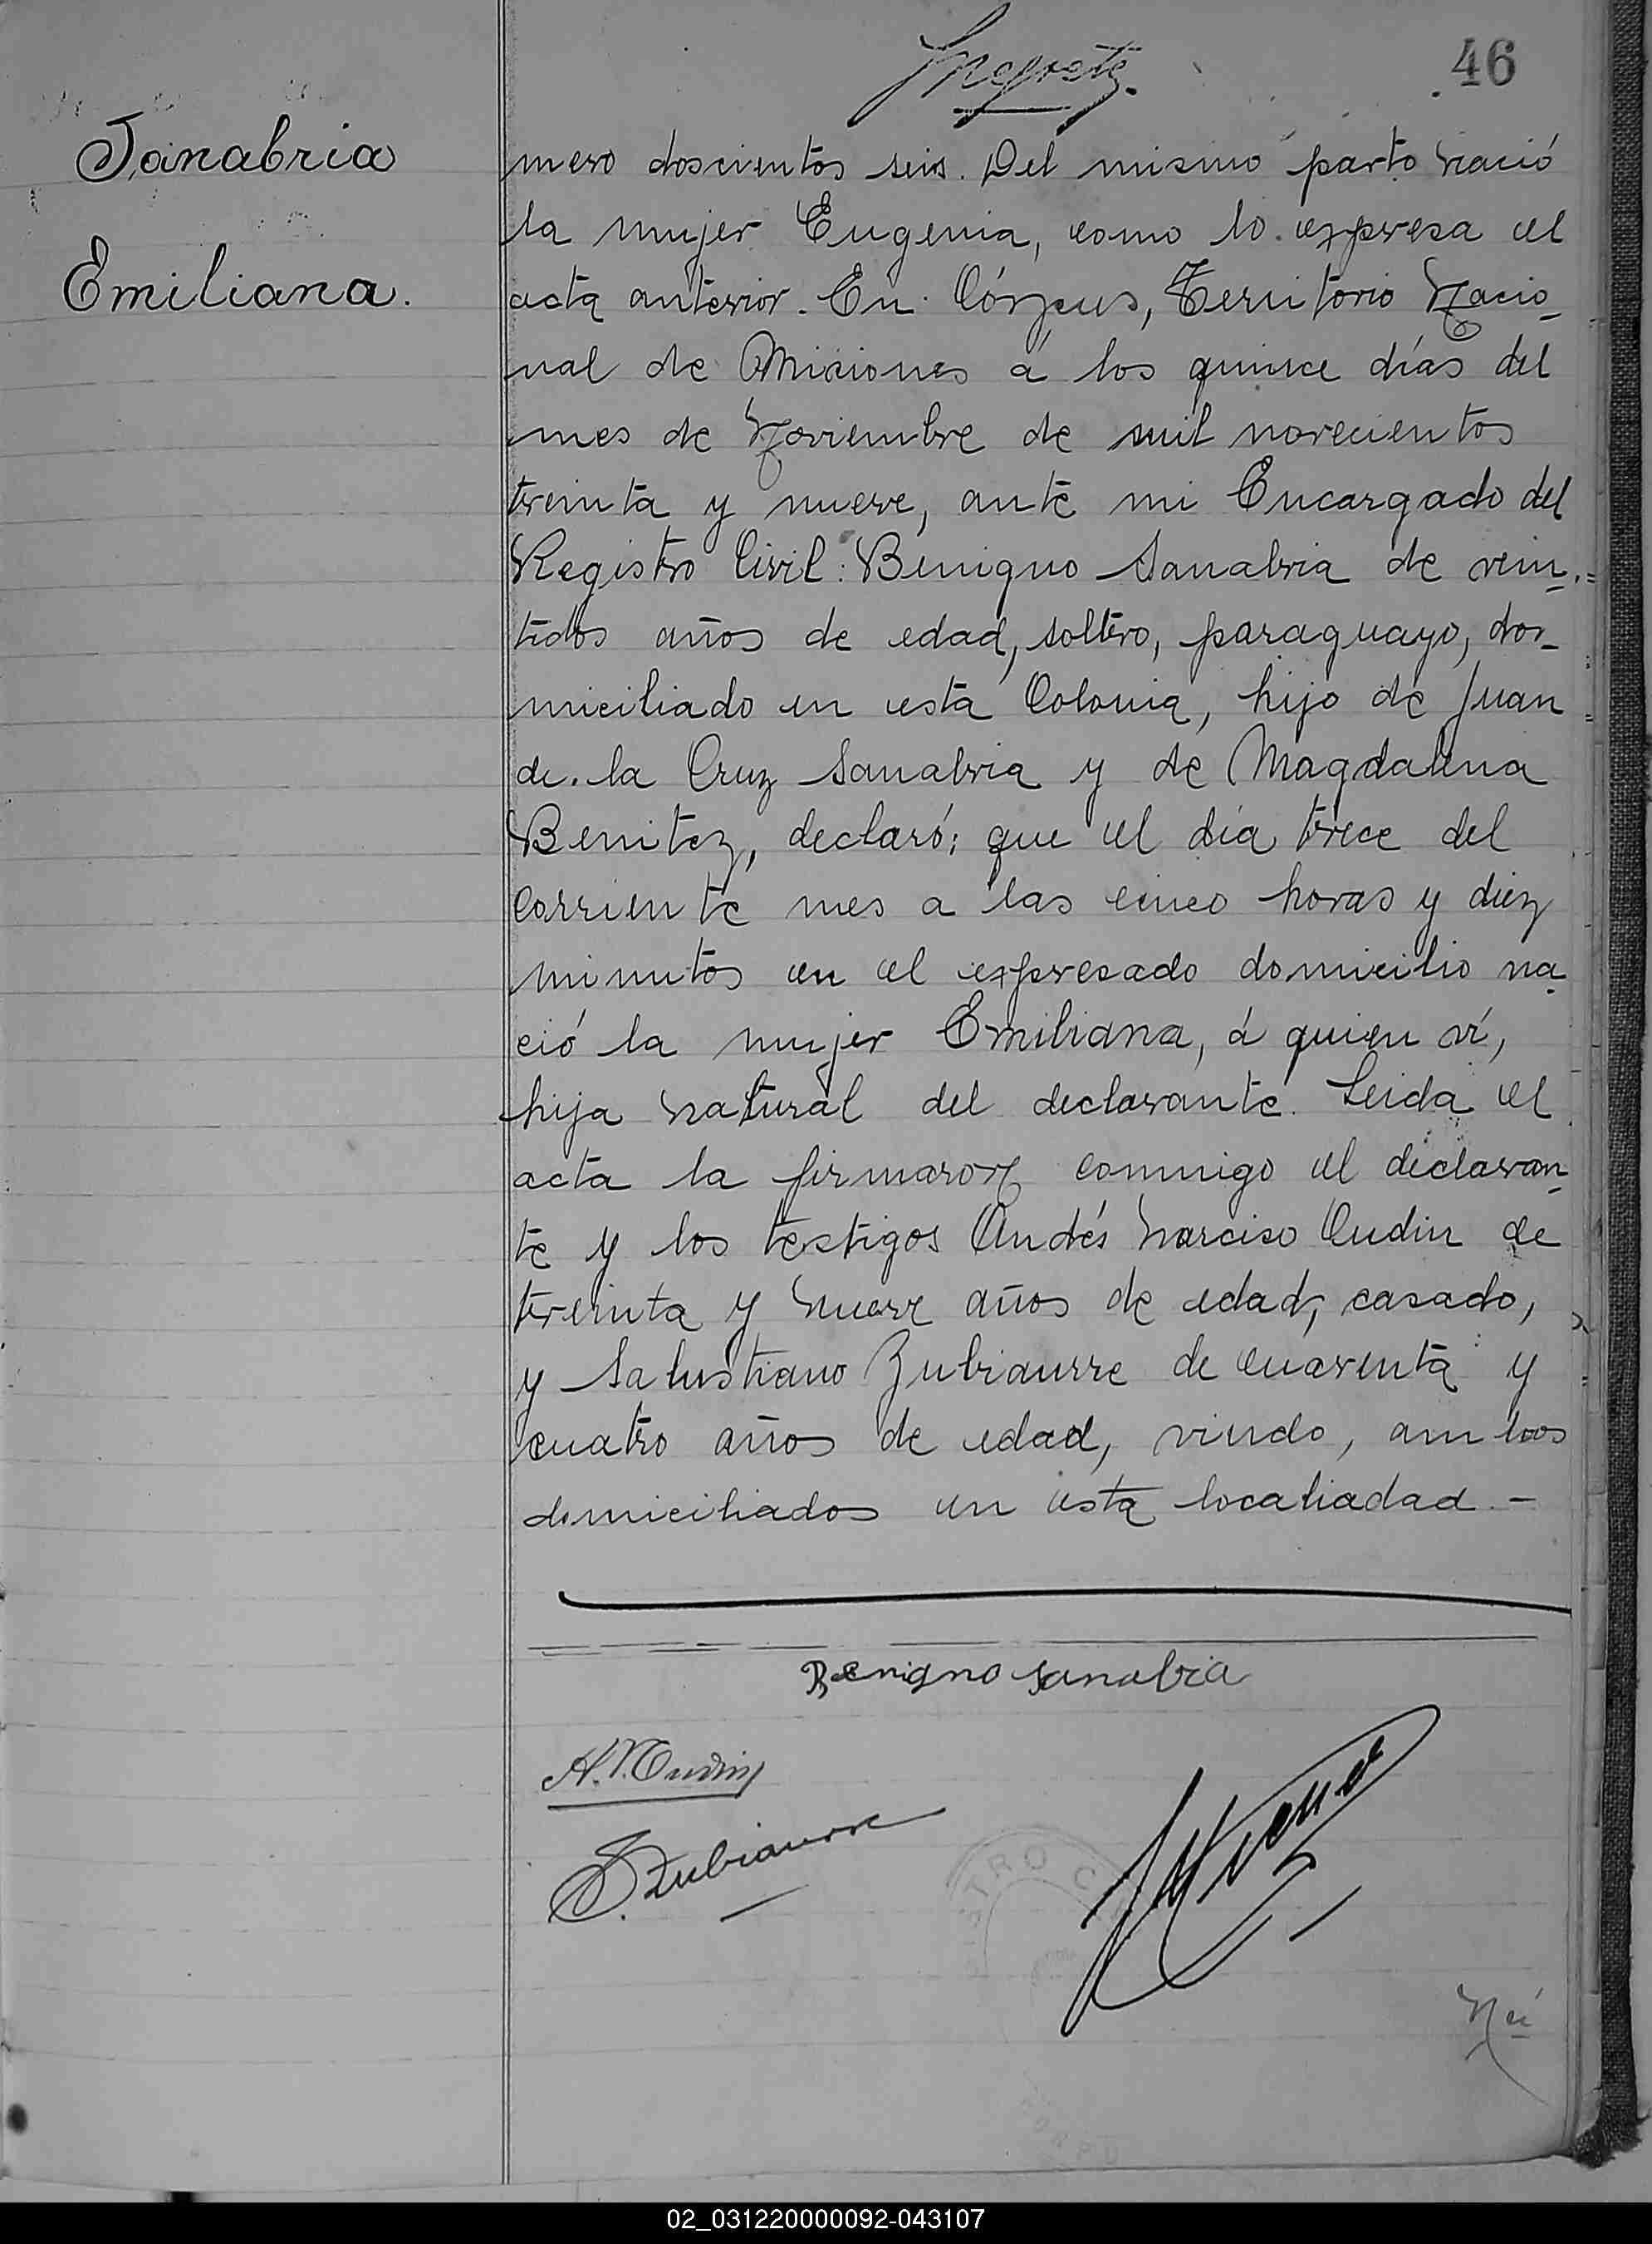 46
Sanabria
Emiliana.
mero doscientos seis. Del mismo parto nació
la mujer Eugenia, como lo expresa el
acta anterior. En Córpus, Territorio Nacio_
nal de Misiones á los quince días del
mes de Noviembre de mil novecientos
treinta y nueve, ante mi Encargado del
Registro Civil: Benigno Sanabria de vein_
tidos años de edad, soltero, paraguayo, do_
miciliado en esta Colonia, hijo de Juan
de la Cruz Sanabria y de Magdalena
Benitez, declaró; que el día trece del
corriente mes a las cinco horas y diez
minutos en el expresado domicilio na_
ció la mujer Emiliana, á quien ví,
hija natural del declarante. Leida el
acta la firmaron conmigo el declaran_
te y los testigos Andés Narciso Oudin de
treinta y nueve años de edad, casado,
y Salustiano Zubiaurre de cuarenta y
cuatro años de edad, viudo, ambos
domiciliados en esta localiadad.-
Benigno Sanabria
A.N.Oudin
S. Zubiaurre
TRO C
02_031220000092-043107